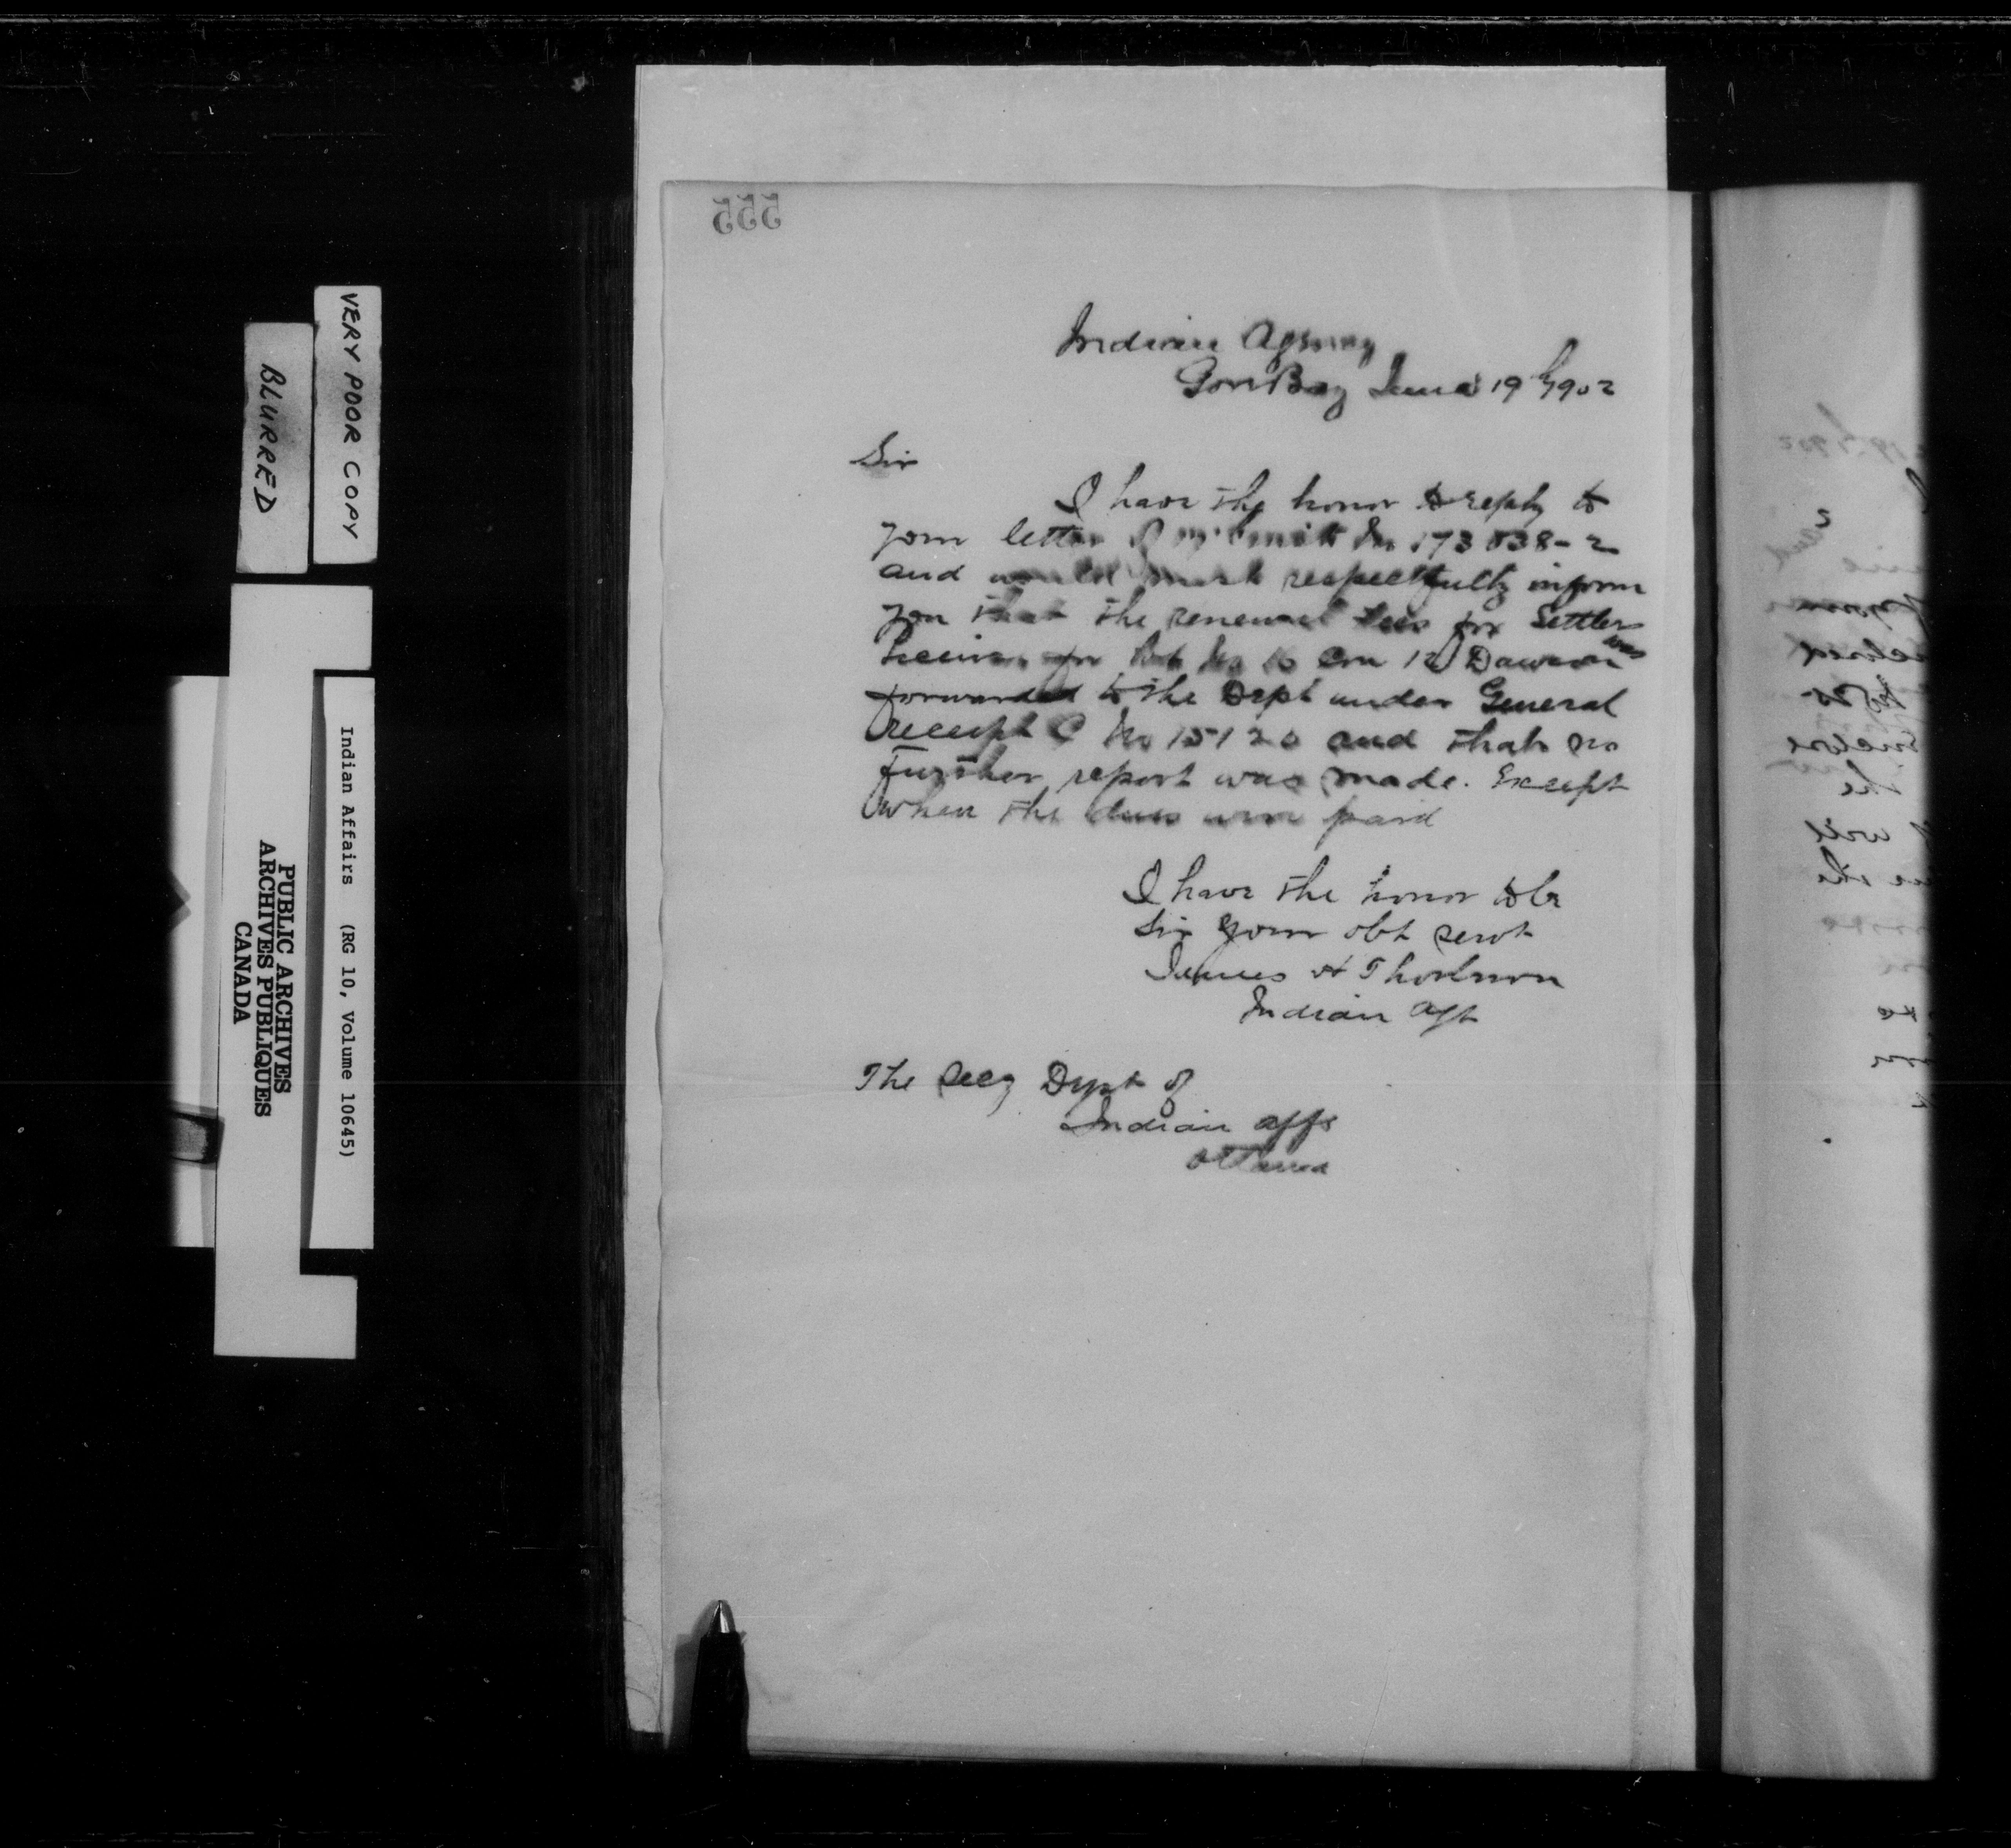 555
Indian Agency
Gore Bay June 19th 1902
Sir
I have the honor to reply to
your letter of No 173838-2
and would most respectfully inform
you that the renewal fees for Settlers
License for Lot No 16 Con 12 Dawson was
forwarded to the Dept under General
receipt C No 15120 and that no
further report was made. Except
when the dues were paid
I have the honor to be
Sir your obt servt
James H Thorburn
Indian Agt
The Secy Dept of
Indian Affs
Ottawa
VERY POOR COPY
BLURRED
Indian Affairs (RG 10, Volume 10645)
PUBLIC ARCHIVES
ARCHIVES PUBLIQUES
CANADA